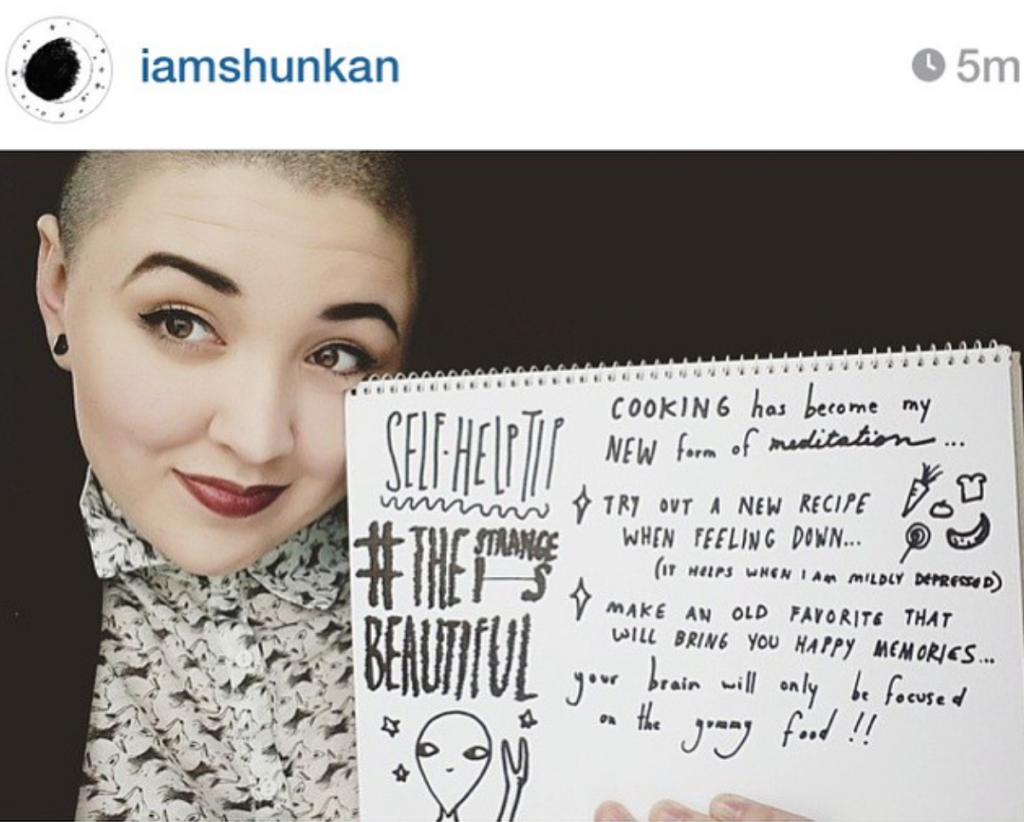 iamshunkan
5m
SELF-HELP TIP
#THE STRANGE
IS
BEAUTIFUL
COOKING has become my
NEW form of meditation...
TRY OUT A NEW RECIPE
WHEN FEELING DOWN...
(IT HELPS WHEN I AM MILDLY DEPRESSED)
MAKE AN OLD FAVORITE THAT
WILL BRING YOU HAPPY MEMORIES...
your brain will only be focused
on the yummy food!!